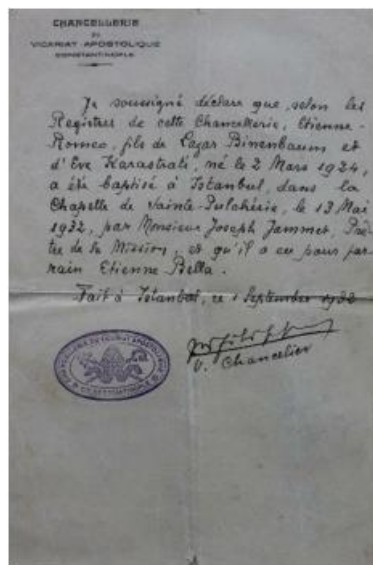 CHANCELLERIE
DU
VICARIAT APOSTOLIQUE
CONSTANTINOPLE
Je soussigné déclare que, selon les
Registres de cette Chancellerie, Etienne-
Romeo, fils de Lazar Binenbaum et
d'Eve Karastrati, né le 2 Mars 1924,
a été baptisé à Istanbul, dans la
Chapelle de Sainte-Pulchérie, le 13 Mai
1932, par Monsieur Joseph Jammet, Prê-
tre de la Mission, et qu'il a eu pour par-
rain Etienne Bella.
Fait à Istanbul, ce 1 Septembre 1932
V. Chancelier